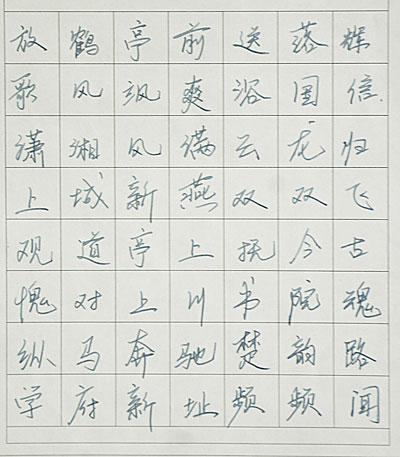 放鹤亭前送落辉
歌风飒爽浴信
潇湘风满云龙归
上城新燕双双飞
观道亭上抚今古
愧对上川书院魂
纵马奔驰楚韵路
学府新址频频闻